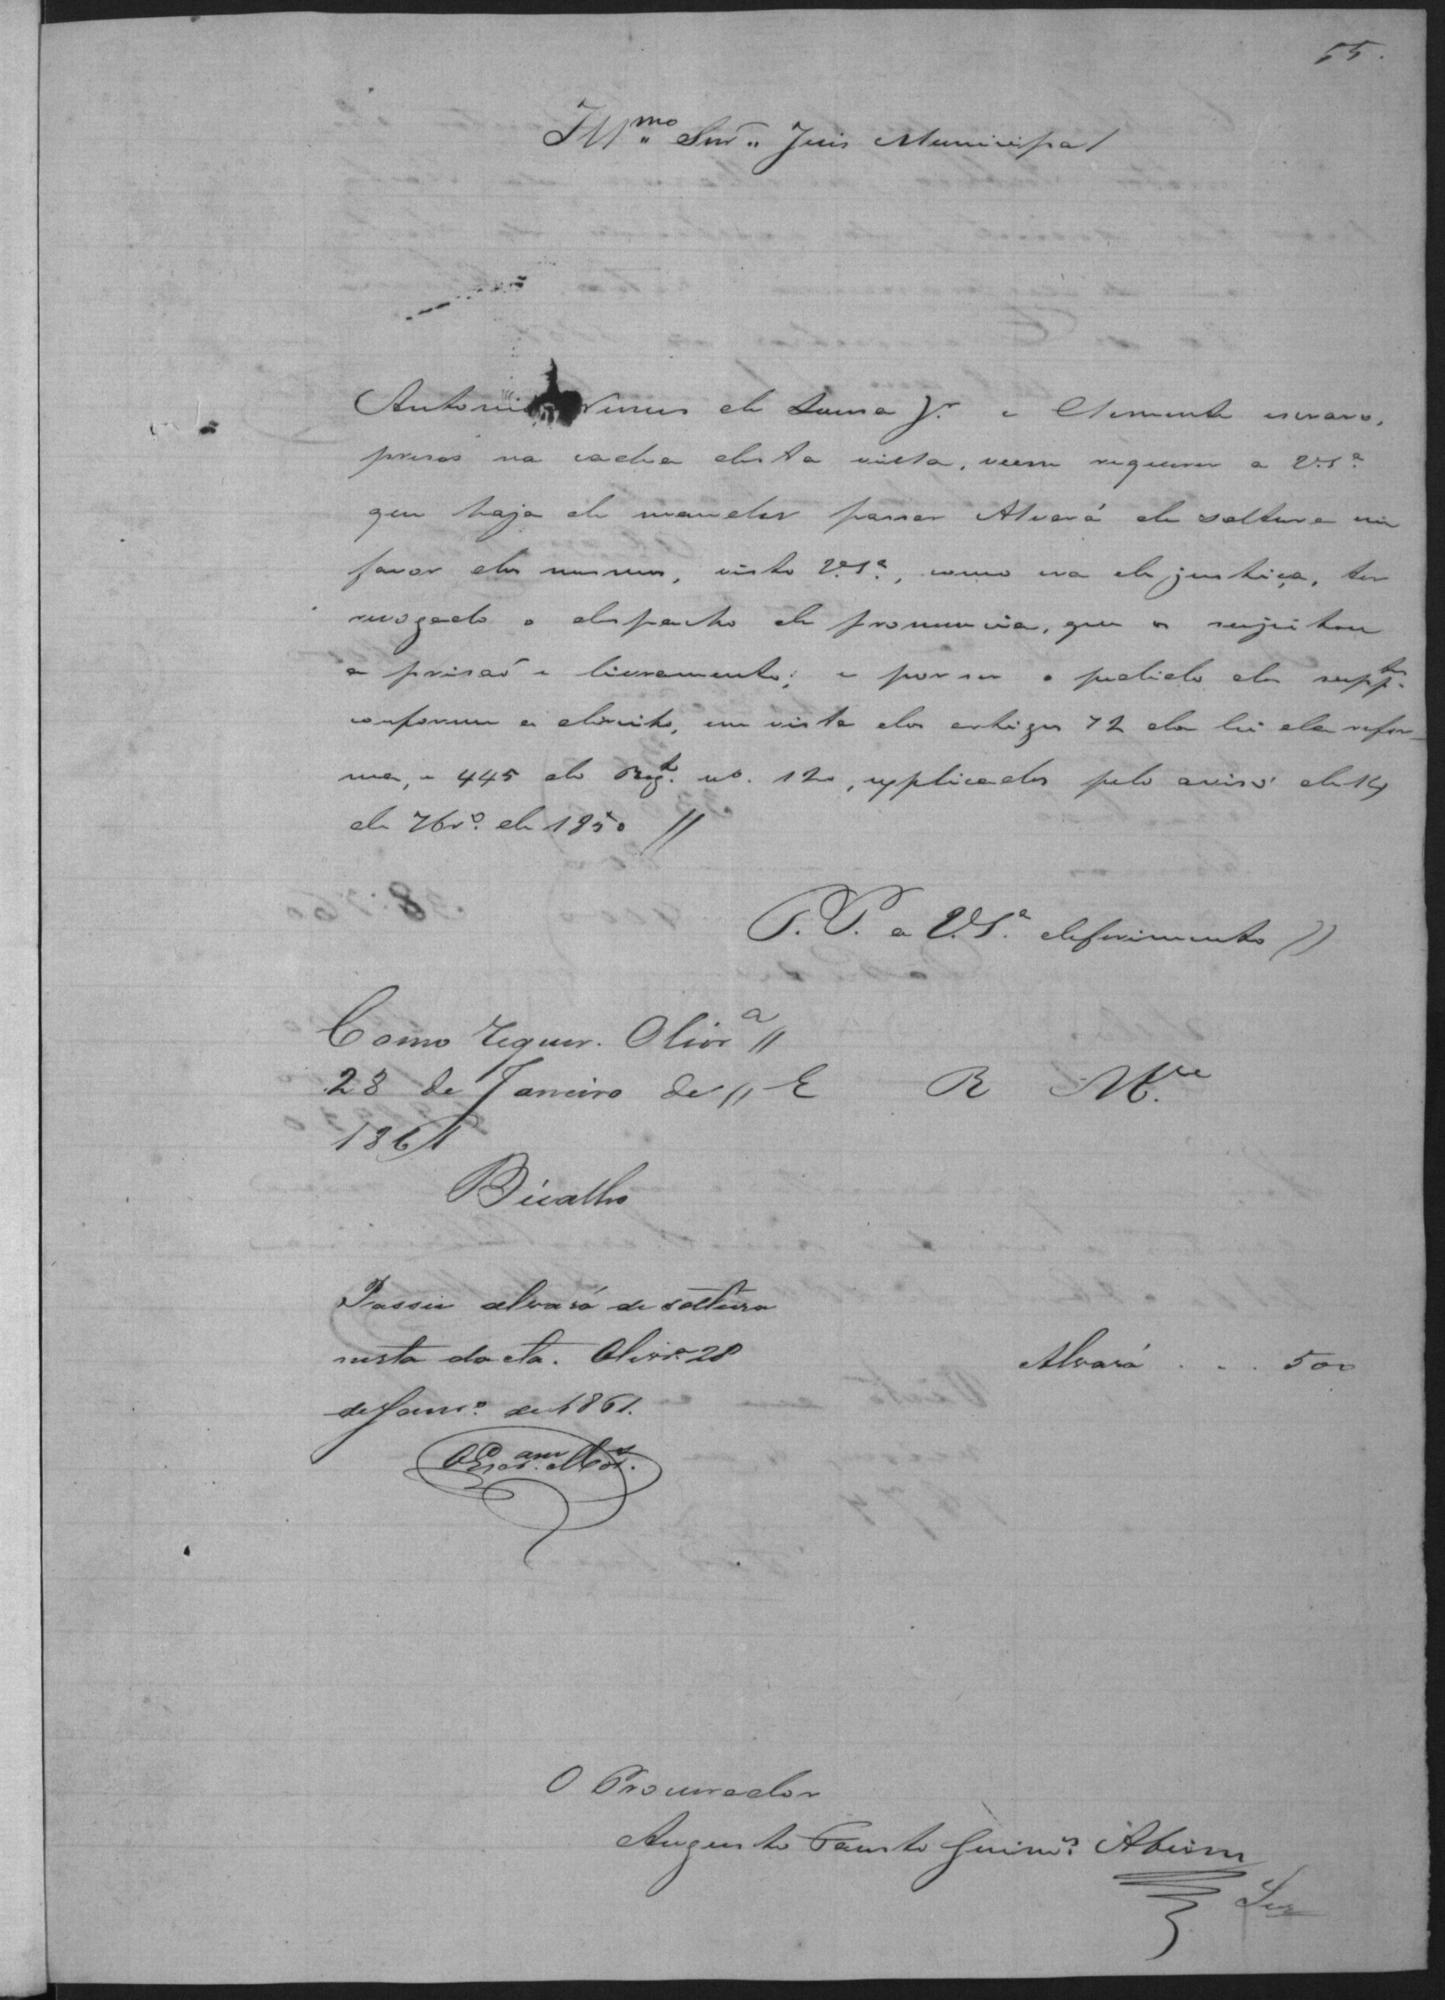 55.
Illmo Snr. Juis Municipal
Antonio Nunes de Sousa Jr. e Clemente escravo,
presos na cadea desta villa, veem requerer a V.Sª.
que haja de mandar passar Alvará de soltura em
favor dos mesmos, visto V.Sª., como era de justiça, ter
revogado o despacho de pronuncia, que os sugeitou
a prisaõ e livramento; e por ser o pedido dos supptes.
conforme a direito, em vista dos artigos 72 da lei da refor-
ma, e 445 do Regto. no. 120, explicados pelo aviso de 14
de 7bro. de 1850 //
P. P. a V.Sª. deferimento //
Como requer. Olivra //
28 de Janeiro de // E R Mce.
1861
Bicalho
Passei alvará de soltura
nesta dacta. Olivra. 28
de Janro. de 1861.
Alvará . . . 500
O Procurador
Augusto Fausto Guimes.